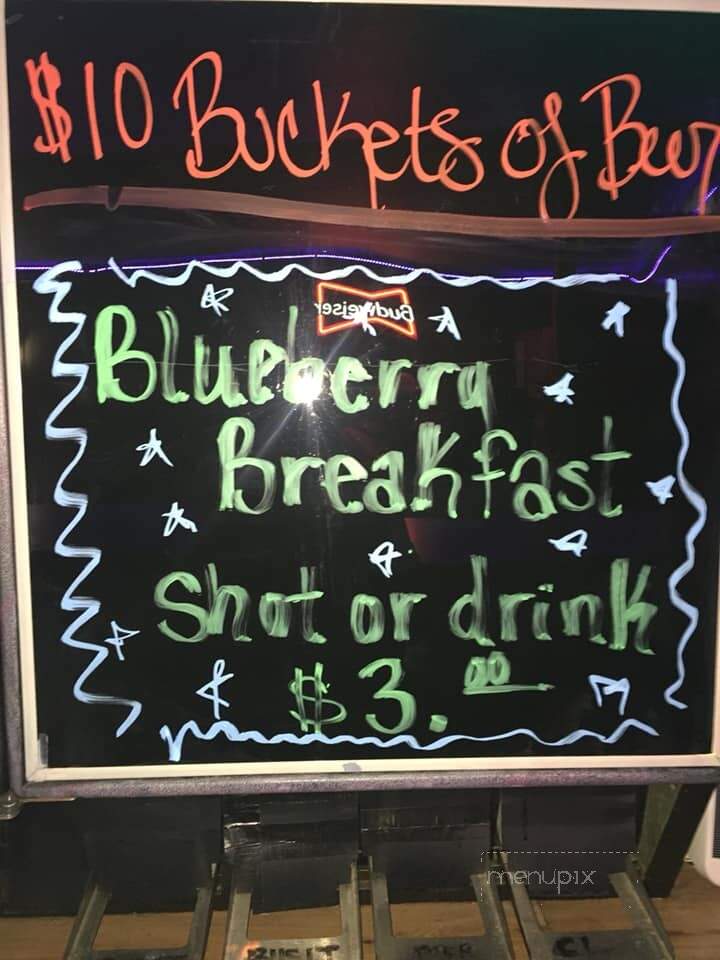 $10 Buckets of Beer
Budweiser
Blueberry
Breakfast
Shot or drink
$3.00
menupix